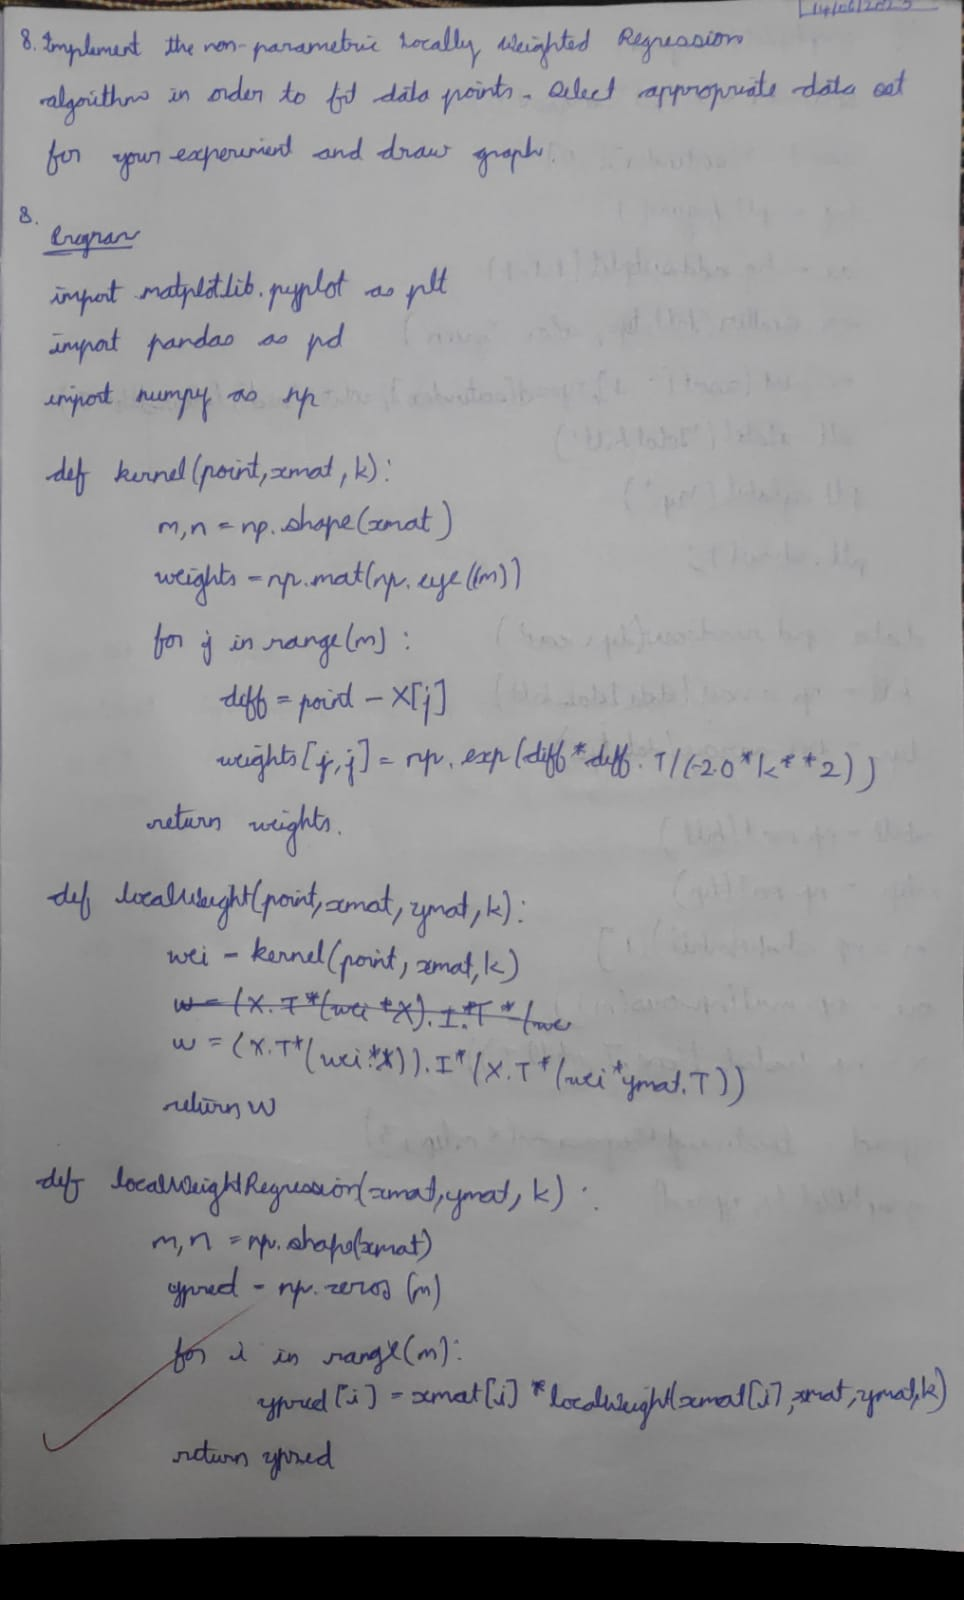 14/06/2023
8. Implement the non-parametric Locally Weighted Regression
algorithm in order to fit data points. Select appropriate data set
for your experiment and draw graph.
8.
Program
import matplotlib.pyplot as plt
import pandas as pd
import numpy as np
def kernel(point,xmat,k):
m,n = np.shape(xmat)
weights = np.mat(np.eye((m))
for j in range(m):
diff = point - X[j]
weights[j,j] = np.exp(diff*diff.T/(-2.0*k**2))
return weights.
def localWeight(point,xmat,ymat,k):
wei = kernel(point,xmat,k)
w = (X.T*(wei*X).I.*T*(we
w = (X.T*(wei*X)).I*(X.T*(wei*ymat.T))
return w
def localWeightRegression(xmat,ymat,k):
m,n = np.shape(xmat)
ypred = np.zeros(m)
for i in range(m):
ypred[i] = xmat[i]*localWeight(xmat[i],xmat,ymat,k)
return ypred